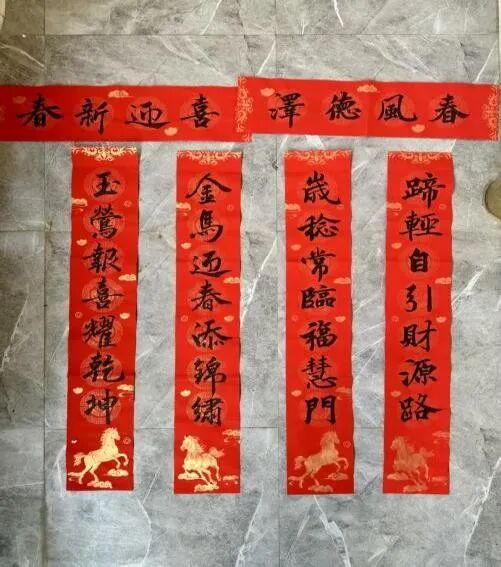 春風德澤
蹄輕自引財源路
歲稔常臨福慧門
喜迎新春
金馬迎春添錦繡
玉鶯報喜耀乾坤